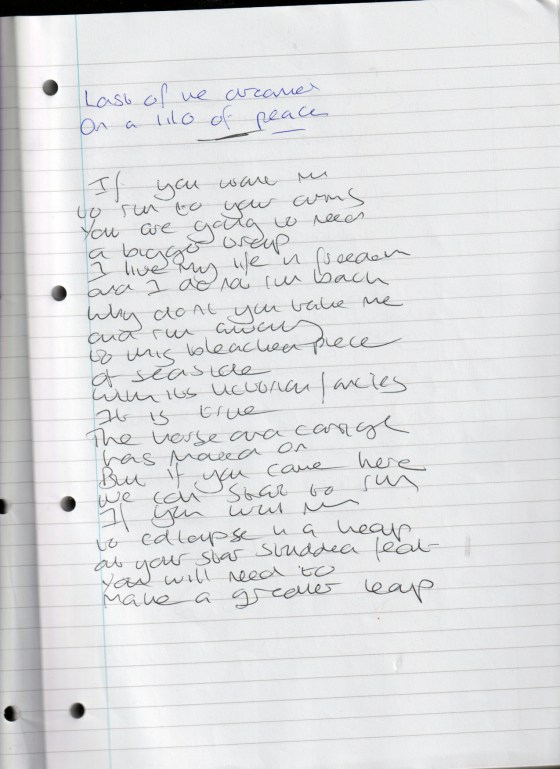 Last of the dreamer
On a lilo of peace
If you want me
to run to your arms
You are going to need
a bigger
I live my life in freedom
and I do not run back
Why dont you take me
and run away
to this bleached piece
of seaside
with its victorian fancies
It is true
The horse and carriage
has moved on
But if you came here
we can start to run
If you want me
to collapse in a heap
at your star studded feet
You will need to
Make a greater leap